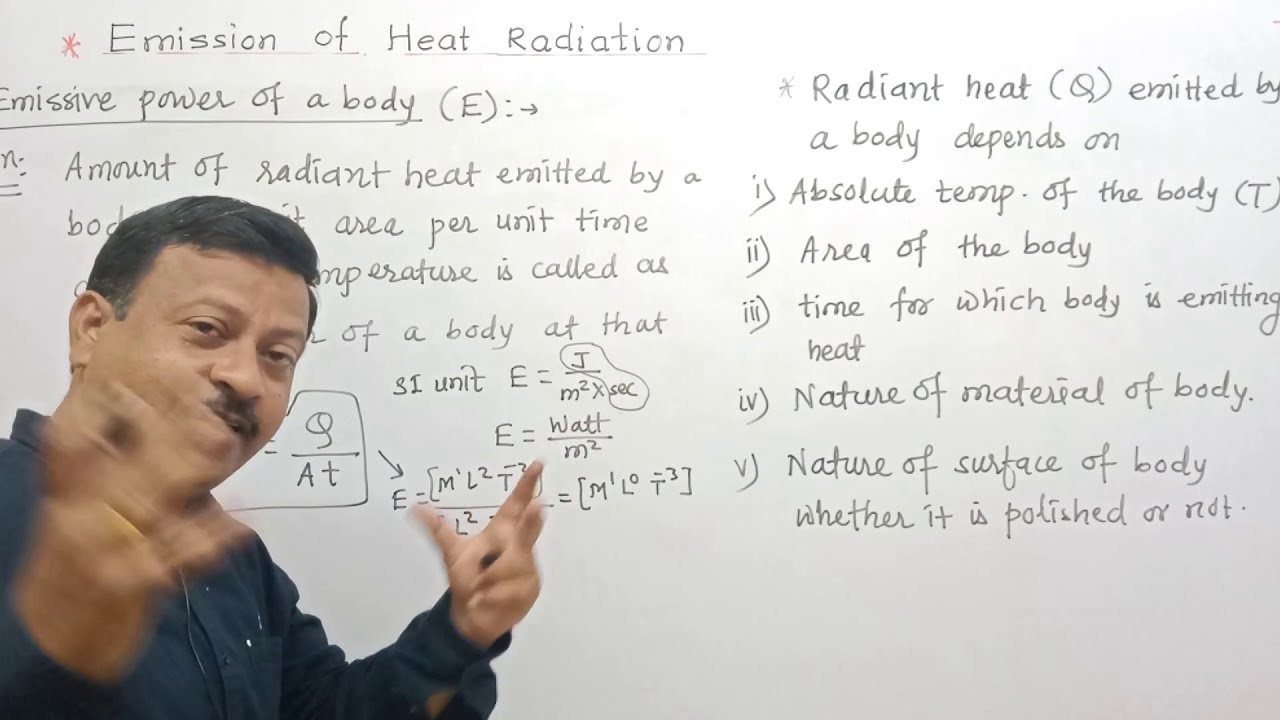 * Emission of Heat Radiation
Emissive power of a body (E):→
n.
Amount of radiant heat emitted by a
area per unit time
is called as
of a body at that
SI unit E = J / m² × sec
E = Watt / m²
= Q / At
E = [M¹L²T / L² = [M¹L⁰T⁻³]
* Radiant heat (Q) emitted by
a body depends on
i) Absolute temp. of the body (T)
ii) Area of the body
iii) time for which body is emitting
heat
iv) Nature of material of body.
v) Nature of surface of body
whether it is polished or not.